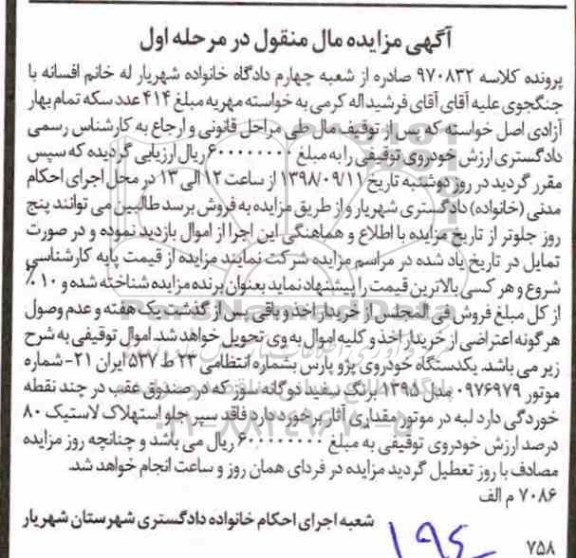 آگهی مزایده مال منقول در مرحله اول
پرونده کلاسه ۹۷۰۸۳۲ صادره از شعبه چهارم دادگاه خانواده شهریار له خانم افسانه با
جنگجوی علیه آقای آقای فرشیداله کرمی به خواسته مهریه مبلغ ۴۱۴ عدد سکه تمام بهار
آزادی اصل خواسته که پس از توقیف مال طی مراحل قانونی و ارجاع به کارشناس رسمی
دادگستری ارزش خودروی توقیفی را به مبلغ ۶۰۰۰۰۰۰۰۰ ریال ارزیابی گردیده که سپس
مقرر گردید در روز دوشنبه تاریخ ۱۳۹۸/۰۹/۱۱ از ساعت ۱۲ الی ۱۳ در محل اجرای احکام
مدنی (خانواده) دادگستری شهریار و از طریق مزایده به فروش برسد طالبین می توانند پنج
روز جلوتر از تاریخ مزایده با اطلاع و هماهنگی این اجرا از اموال بازدید نموده و در صورت
تمایل در تاریخ یاد شده در مراسم مزایده شرکت نمایند مزایده از قیمت پایه کارشناسی
شروع و هر کسی بالاترین قیمت را پیشنهاد نماید بعنوان برنده مزایده شناخته شده و ۱۰٪
از کل مبلغ فروش فی المجلس از خریدار اخذ و باقی پس از گذشت یک هفته و عدم وصول
هرگونه اعتراضی از خریدار اخذ و کلیه اموال به وی تحویل خواهد شد. اموال توقیفی به شرح
زیر می باشد. یکدستگاه خودروی پژو پارس بشماره انتظامی ۲۳ ط ۵۳۷ ایران ۲۱- شماره
موتور ۰۹۷۶۹۷۹ مدل ۱۳۹۵ برنگ سفید دوگانه سوز که در صندوق عقب در چند نقطه
خوردگی دارد لبه در موتور مقداری آثار برخورد دارد فاقد سپر جلو استهلاک لاستیک ۸۰
درصد ارزش خودروی توقیفی به مبلغ ۶۰۰۰۰۰۰۰۰ ریال می باشد و چنانچه روز مزایده
مصادف با روز تعطیل گردید مزایده در فردای همان روز و ساعت انجام خواهد شد.
۷۰۸۶ م الف
شعبه اجرای احکام خانواده دادگستری شهرستان شهریار
۷۵۸